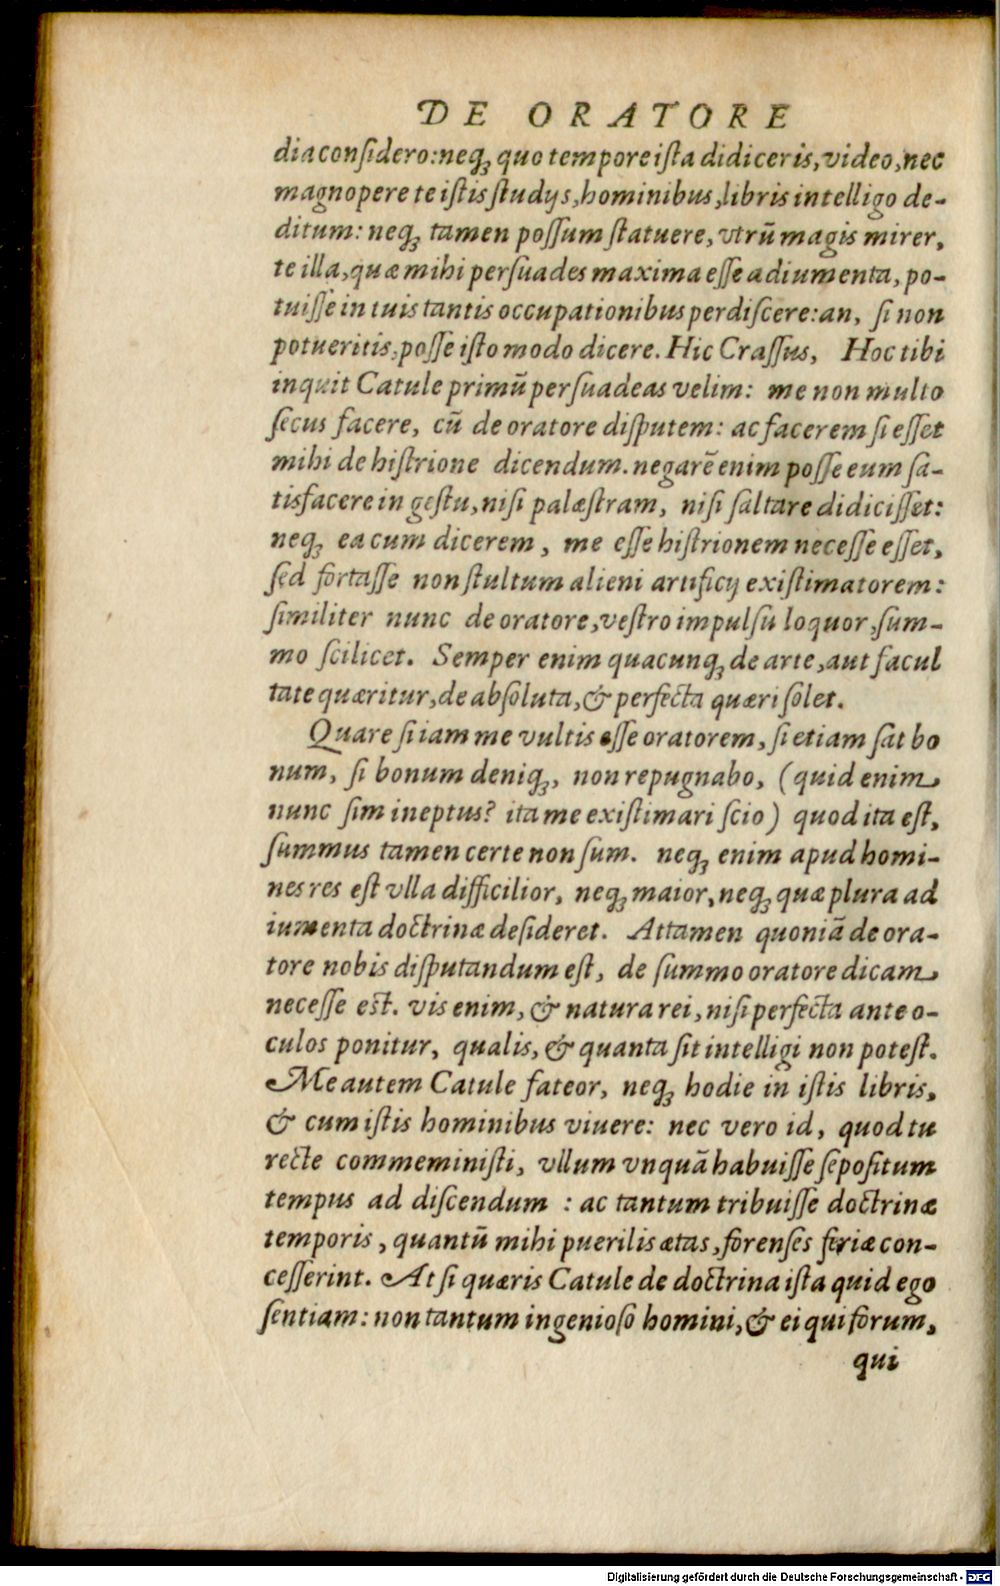 DE ORATORE
dia considero: neq; quo tempore ista didiceris, video, nec
magnopere te istis studijs, hominibus, libris intelligo de-
ditum: neq; tamen possum statuere, vtrũ magis mirer,
te illa, quæ mihi persuades maxima esse adiumenta, po-
tuisse in tuis tantis occupationibus perdiscere: an, si non
potueritis, posse isto modo dicere. Hic Crassus, Hoc tibi
inquit Catule primũ persuadeas velim: me non multo
secus facere, cũ de oratore disputem: ac facerem si esset
mihi de histrione dicendum. negarẽ enim posse eum sa-
tisfacere in gestu, nisi palæstram, nisi saltare didicisset:
neq; ea cum dicerem, me esse histrionem necesse esset,
sed fortasse non stultum alieni artificij existimatorem:
similiter nunc de oratore, vestro impulsu loquor, sum-
mo scilicet. Semper enim quacunq; de arte, aut facul
tate quæritur, de absoluta, & perfecta quæri solet.
Quare si iam me vultis esse oratorem, si etiam sat bo
num, si bonum deniq;, non repugnabo, (quid enim
nunc sim ineptus? ita me existimari scio) quod ita est,
summus tamen certe non sum. neq; enim apud homi-
nes res est vlla difficilior, neq; maior, neq; quæ plura ad
iumenta doctrinæ desideret. Attamen quoniã de ora-
tore nobis disputandum est, de summo oratore dicam
necesse est. vis enim, & natura rei, nisi perfecta ante o-
culos ponitur, qualis, & quanta sit intelligi non potest.
Me autem Catule fateor, neq; hodie in istis libris,
& cum istis hominibus viuere: nec vero id, quod tu
recte commeministi, vllum vnquã habuisse sepositum
tempus ad discendum : ac tantum tribuisse doctrinæ
temporis, quantũ mihi puerilis ætas, forenses feriæ con-
cesserint. At si quæris Catule de doctrina ista quid ego
sentiam: non tantum ingenioso homini, & ei qui forum,
qui
Digitalisierung gefördert durch die Deutsche Forschungsgemeinschaft - DFG